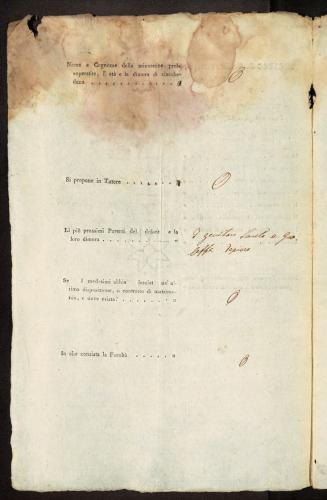 Nome e Cognome della minorenne prole
superstite, l'età e la dimora di ciasche-
duno . . . . . . . . . . . . . 0
Si propone in Tutore . . . . . . . 0
Li più prossimi Parenti del defunto e la
loro dimora . . . . . . . . . . I genitori
Se i medesimi abbia lasciat un'ul-
tima disposizione, o contratto di matrimo-
nio, e dove esista? . . . . . . . . 0
In che consista la Facoltà . . . . . 0